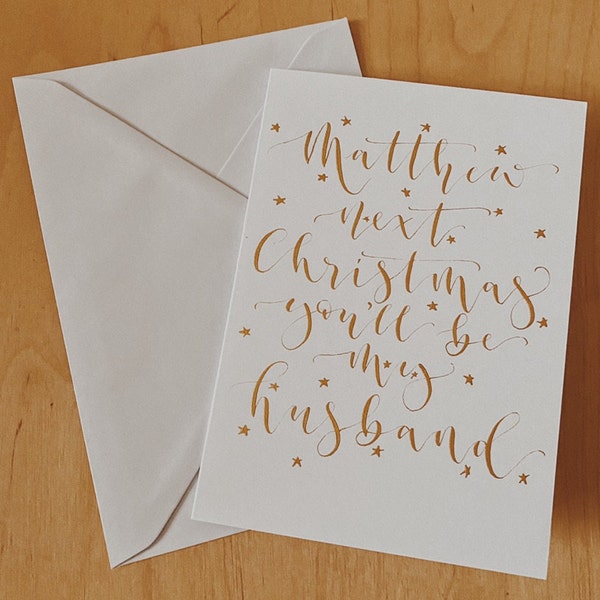 Matthew
next
Christmas
you'll be
my
husband